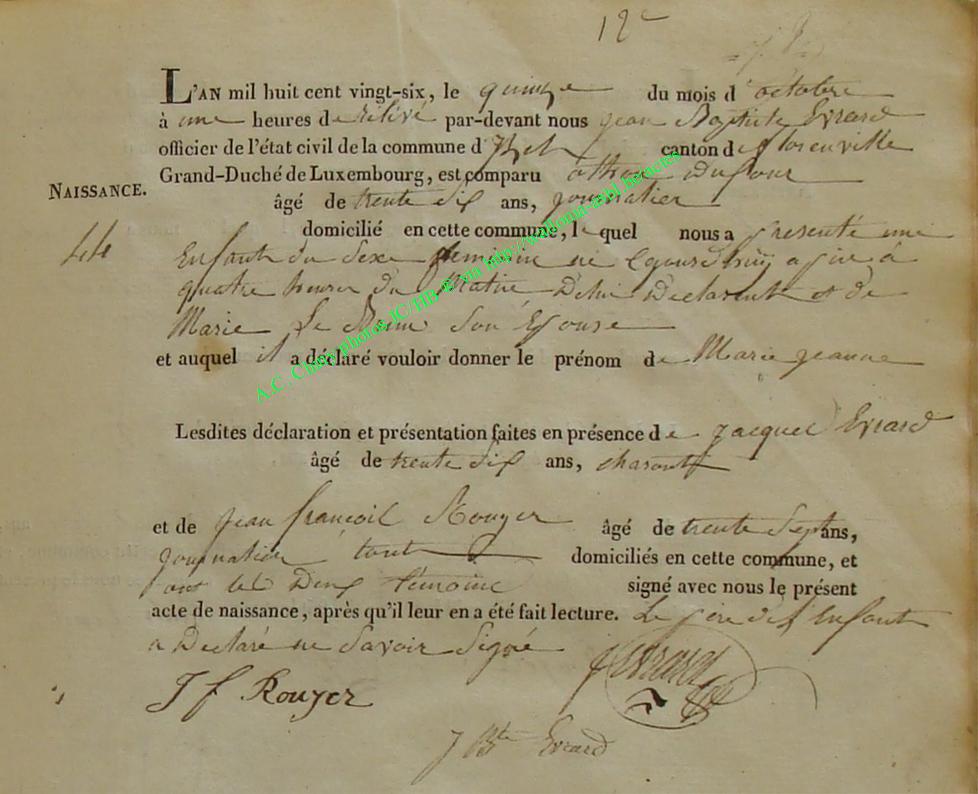 12e
L'AN mil huit cent vingt-six, le quinze du mois d'octobre
à une heures de relivé par-devant nous jean Baptiste Evrard
officier de l'état civil de la commune d canton de florenville
Grand-Duché de Luxembourg, est comparu dufour
NAISSANCE.
âgé de trente six ans, journalier
domicilié en cette commune, le quel nous a presenté une
44
Enfant du Sexe feminin né a
quatre heures du Matin De lui Declarant et de
Marie Le Son Epouse
et auquel il a déclaré vouloir donner le prénom de Marie jeanne
Lesdites déclaration et présentation faites en présence de jacques Evrard
âgé de trente six ans,
et de jean françois Rouyer âgé de trente Sept ans,
journalier tout domiciliés en cette commune, et
ont les Deux témoins signé avec nous le présent
acte de naissance, après qu'il leur en a été fait lecture. Le père de l'Enfant
a Declaré ne Savoir Signé
J f Rouyer
J Evrard
J Bte Evrard
A.C. Chiny photos JC/HB et via http://wallonia-asbl.benactes